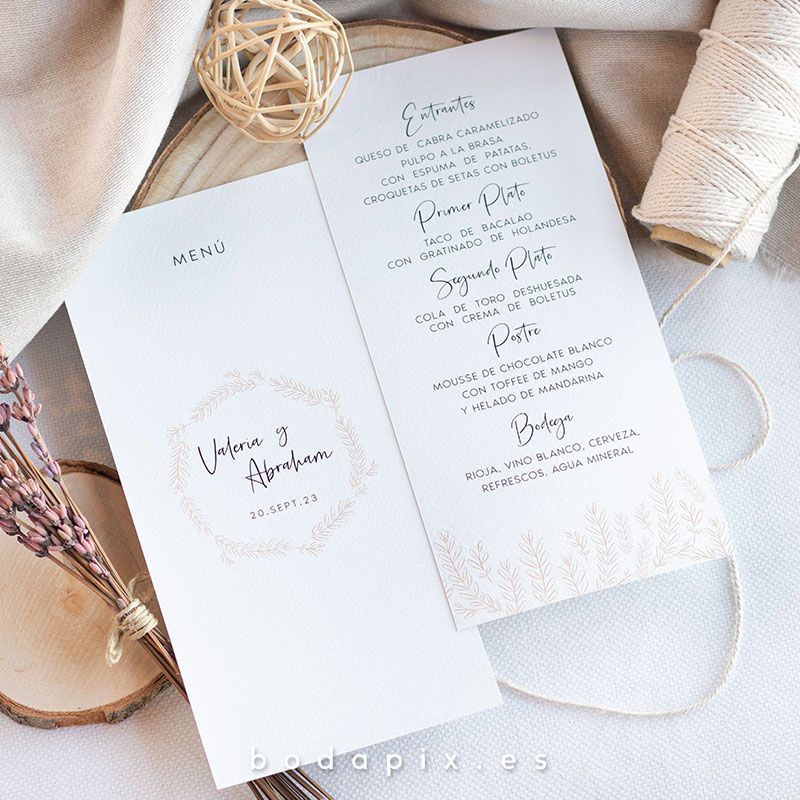 MENÚ
Valeria y
Abraham
20.SEPT.23
Entrantes
QUESO DE CABRA CARAMELIZADO
PULPO A LA BRASA
CON ESPUMA DE PATATAS,
CROQUETAS DE SETAS CON BOLETUS
Primer Plato
TACO DE BACALAO
CON GRATINADO DE HOLANDESA
Segundo Plato
COLA DE TORO DESHUESADA
CON CREMA DE BOLETUS
Postre
MOUSSE DE CHOCOLATE BLANCO
CON TOFFEE DE MANGO
Y HELADO DE MANDARINA
Bodega
RIOJA, VINO BLANCO, CERVEZA,
REFRESCOS, AGUA MINERAL
bodapix.es